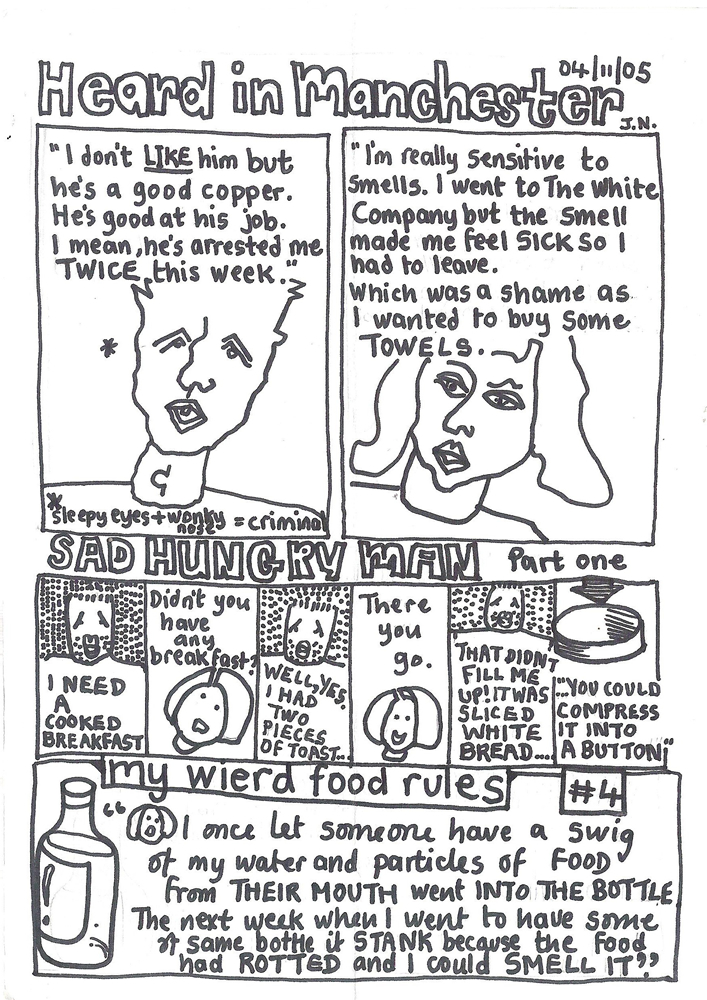 Heard in Manchester
04/11/05
J.N.
"I don't LIKE him but
he's a good copper.
He's good at his job.
I mean, he's arrested me
TWICE this week."
*
*
sleepy eyes + wonky
nose = criminal
"I'm really sensitive to
smells. I went to The White
Company but the smell
made me feel SICK so I
had to leave.
Which was a shame as
I wanted to buy some
TOWELS.
SAD HUNGRY MAN Part one
I NEED
A
COOKED
BREAKFAST
Didn't you
have
any
breakfast?
WELL, YES.
I HAD
TWO
PIECES
OF TOAST...
There
you
go.
THAT DIDN'T
FILL ME
UP! IT WAS
SLICED
WHITE
BREAD....
...YOU COULD
COMPRESS
IT INTO
A BUTTON"
my wierd food rules #4
"I once let someone have a swig
of my water and particles of FOOD
from THEIR MOUTH went INTO THE BOTTLE
The next week when I went to have some
of same bottle it STANK because the food
had ROTTED and I could SMELL IT"